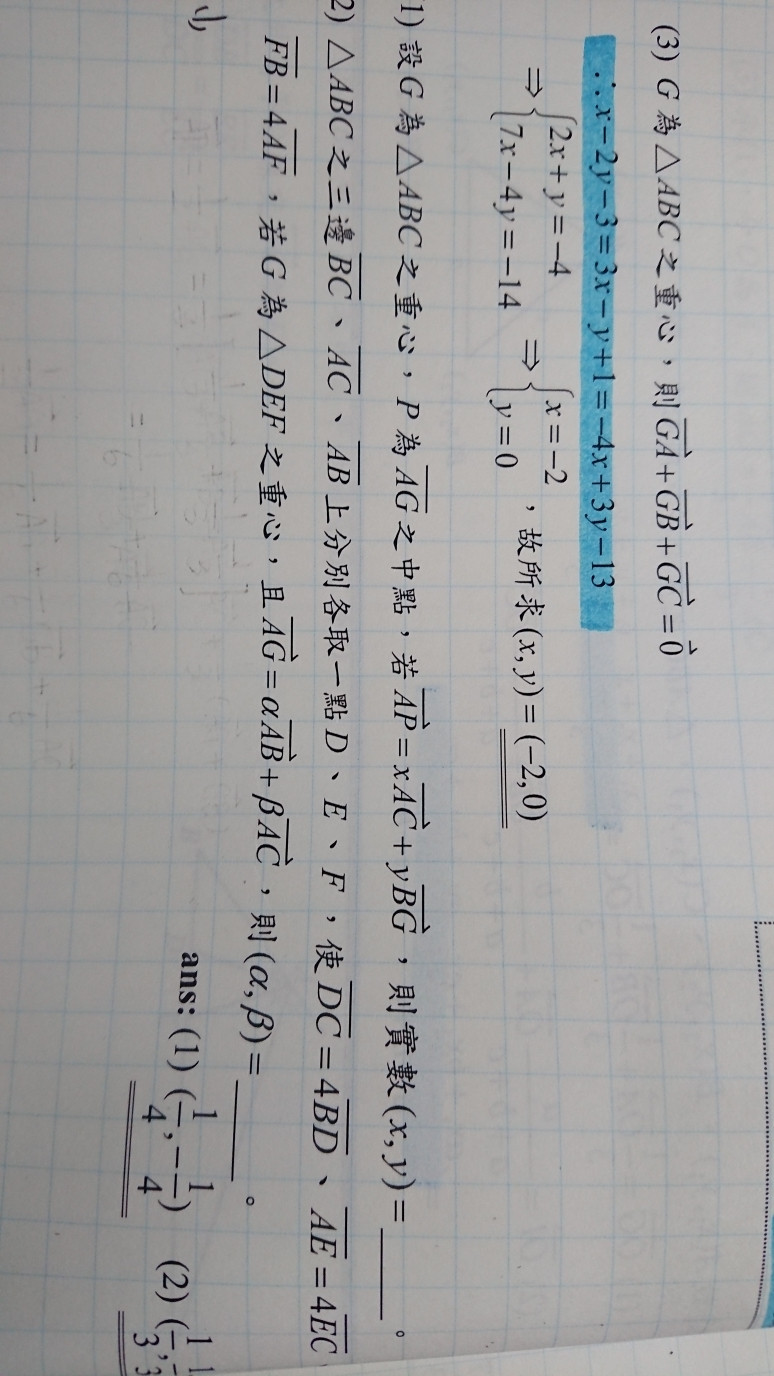 (3) G 為 △ABC 之重心，則 $\overrightarrow{GA}+\overrightarrow{GB}+\overrightarrow{GC}=\vec{0}$
∴ x－2y－3＝3x－y＋1＝－4x＋3y－13
⇒ { 2x＋y＝－4 , 7x－4y＝－14 ⇒ { x＝－2 , y＝0 ，故所求 (x, y)＝(－2, 0)
1) 設 G 為 △ABC 之重心，P 為 $\overline{AG}$ 之中點，若 $\overrightarrow{AP}=x\overrightarrow{AC}+y\overrightarrow{BG}$，則實數 (x, y)＝＿＿＿。
2) △ABC 之三邊 $\overline{BC}$、$\overline{AC}$、$\overline{AB}$ 上分別各取一點 D、E、F，使 $\overline{DC}=4\overline{BD}$、$\overline{AE}=4\overline{EC}$
$\overline{FB}=4\overline{AF}$，若 G 為 △DEF 之重心，且 $\overrightarrow{AG}=\alpha\overrightarrow{AB}+\beta\overrightarrow{AC}$，則 (α, β)＝＿＿＿。
ans: (1) $(\frac{1}{4},-\frac{1}{4})$ (2) $(\frac{1}{3},\frac{1}{3}$